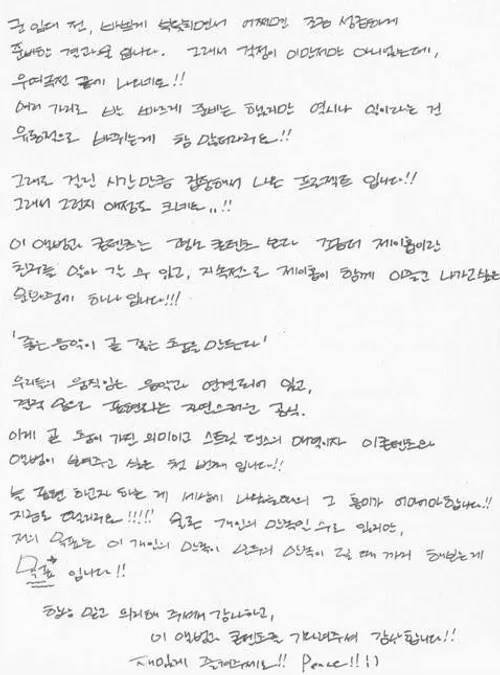 군 입대 전, 바쁘게 부딪히면서 어쩌면 조금 성급하게
준비한 결과물 입니다. 그래서 걱정이 이만저만 아니었는데,
우여곡절 끝에 나오네요!!
여러 가지로 발 빠르게 준비는 했지만 역시나 일이라는 건
유동적으로 바뀌는게 참 많더라구요!!
그래도 걸린 시간만큼 집중해서 나온 프로젝트 입니다!!
그래서 그런지 애정도 크네요..!!
이 앨범과 콘텐츠는 정보 콘텐츠 보다 제이홉이란
친구를 알아 갈 수 있고, 지속적으로 제이홉이 함께 이끌고 나가고 싶은
하나 입니다!!!
'좋은 음악이 곧 좋은 춤을 만든다'
우리들의 움직임은 음악과 연결되어 있고,
결국 춤으로 표현되는 자연스러운 공식.
이게 곧 춤이 가진 의미이고 스트릿 댄스의 매력이자 이 콘텐츠와
앨범이 보여주고 싶은 첫 번째 입니다!!
늘 표현 하고자 하는 게 세상에 나왔을때의 그 용기가 어마어마합니다!!
지금도 떨리구요!!!!! 물론 개인의 만족일 수도 있지만,
저의 목표는 이 개인의 만족이 모두의 만족이 될 때 까지 해보는게
목표 입니다!!
항상 믿고 의지해 주셔서 감사하고,
이 앨범과 콘텐츠를 기다려주셔 감사합니다!!
재밌게 즐겨주세요!! Peace!! :)